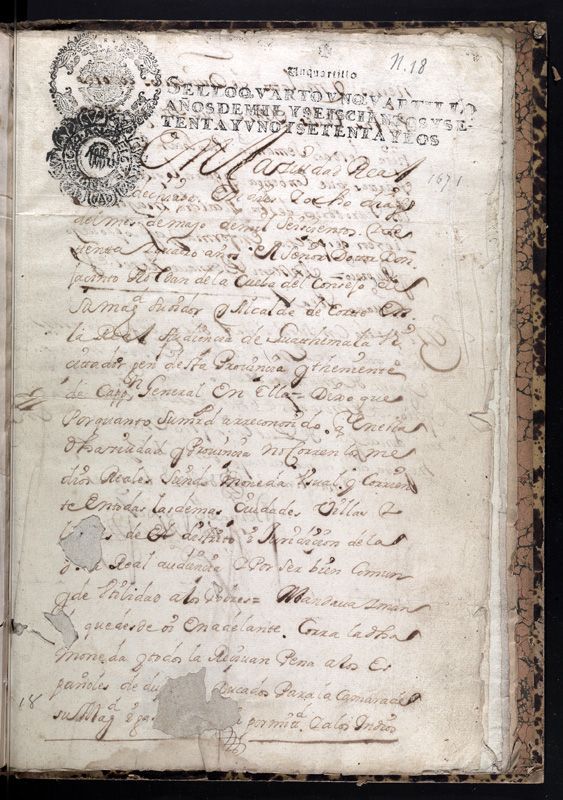 N. 18
Unquartillo
SELLO QVARTO VN QVARTILLO
AÑOS DE MIL Y SEISCIENTOS Y SE-
TENTA Y VNO Y SETENTA Y DOS
1671
En la ciudad Real
en dies y ocho dias
del mes de mayo de mil y seisçientos y se
tenta años El Señor Doctor Don
Jacinto Roldan de la Cueba del Consejo de
Su mag Alcalde de Corte En
la Real Audiencia de Guathemala
de esta Provincia y theniente
de Capp General En Ella = Dixo que
Por quanto Su mrd a reconosido q En esta
dha ciudad y Provincia no Corren los me
dios Reales siendo moneda usual y Corrien
te En todas las demas Ciudades Villas y
de El distrito y Jurisdicion de la
Real audiencia y Por ser bien Comun
y de utilidad a los Pobres = Mandava y man
que desde oi En adelante Corra la dha
moneda y todos la Reçivan Pena a los Es
pañoles de ducados Para la Camara de
su Mag y a los Indios
18